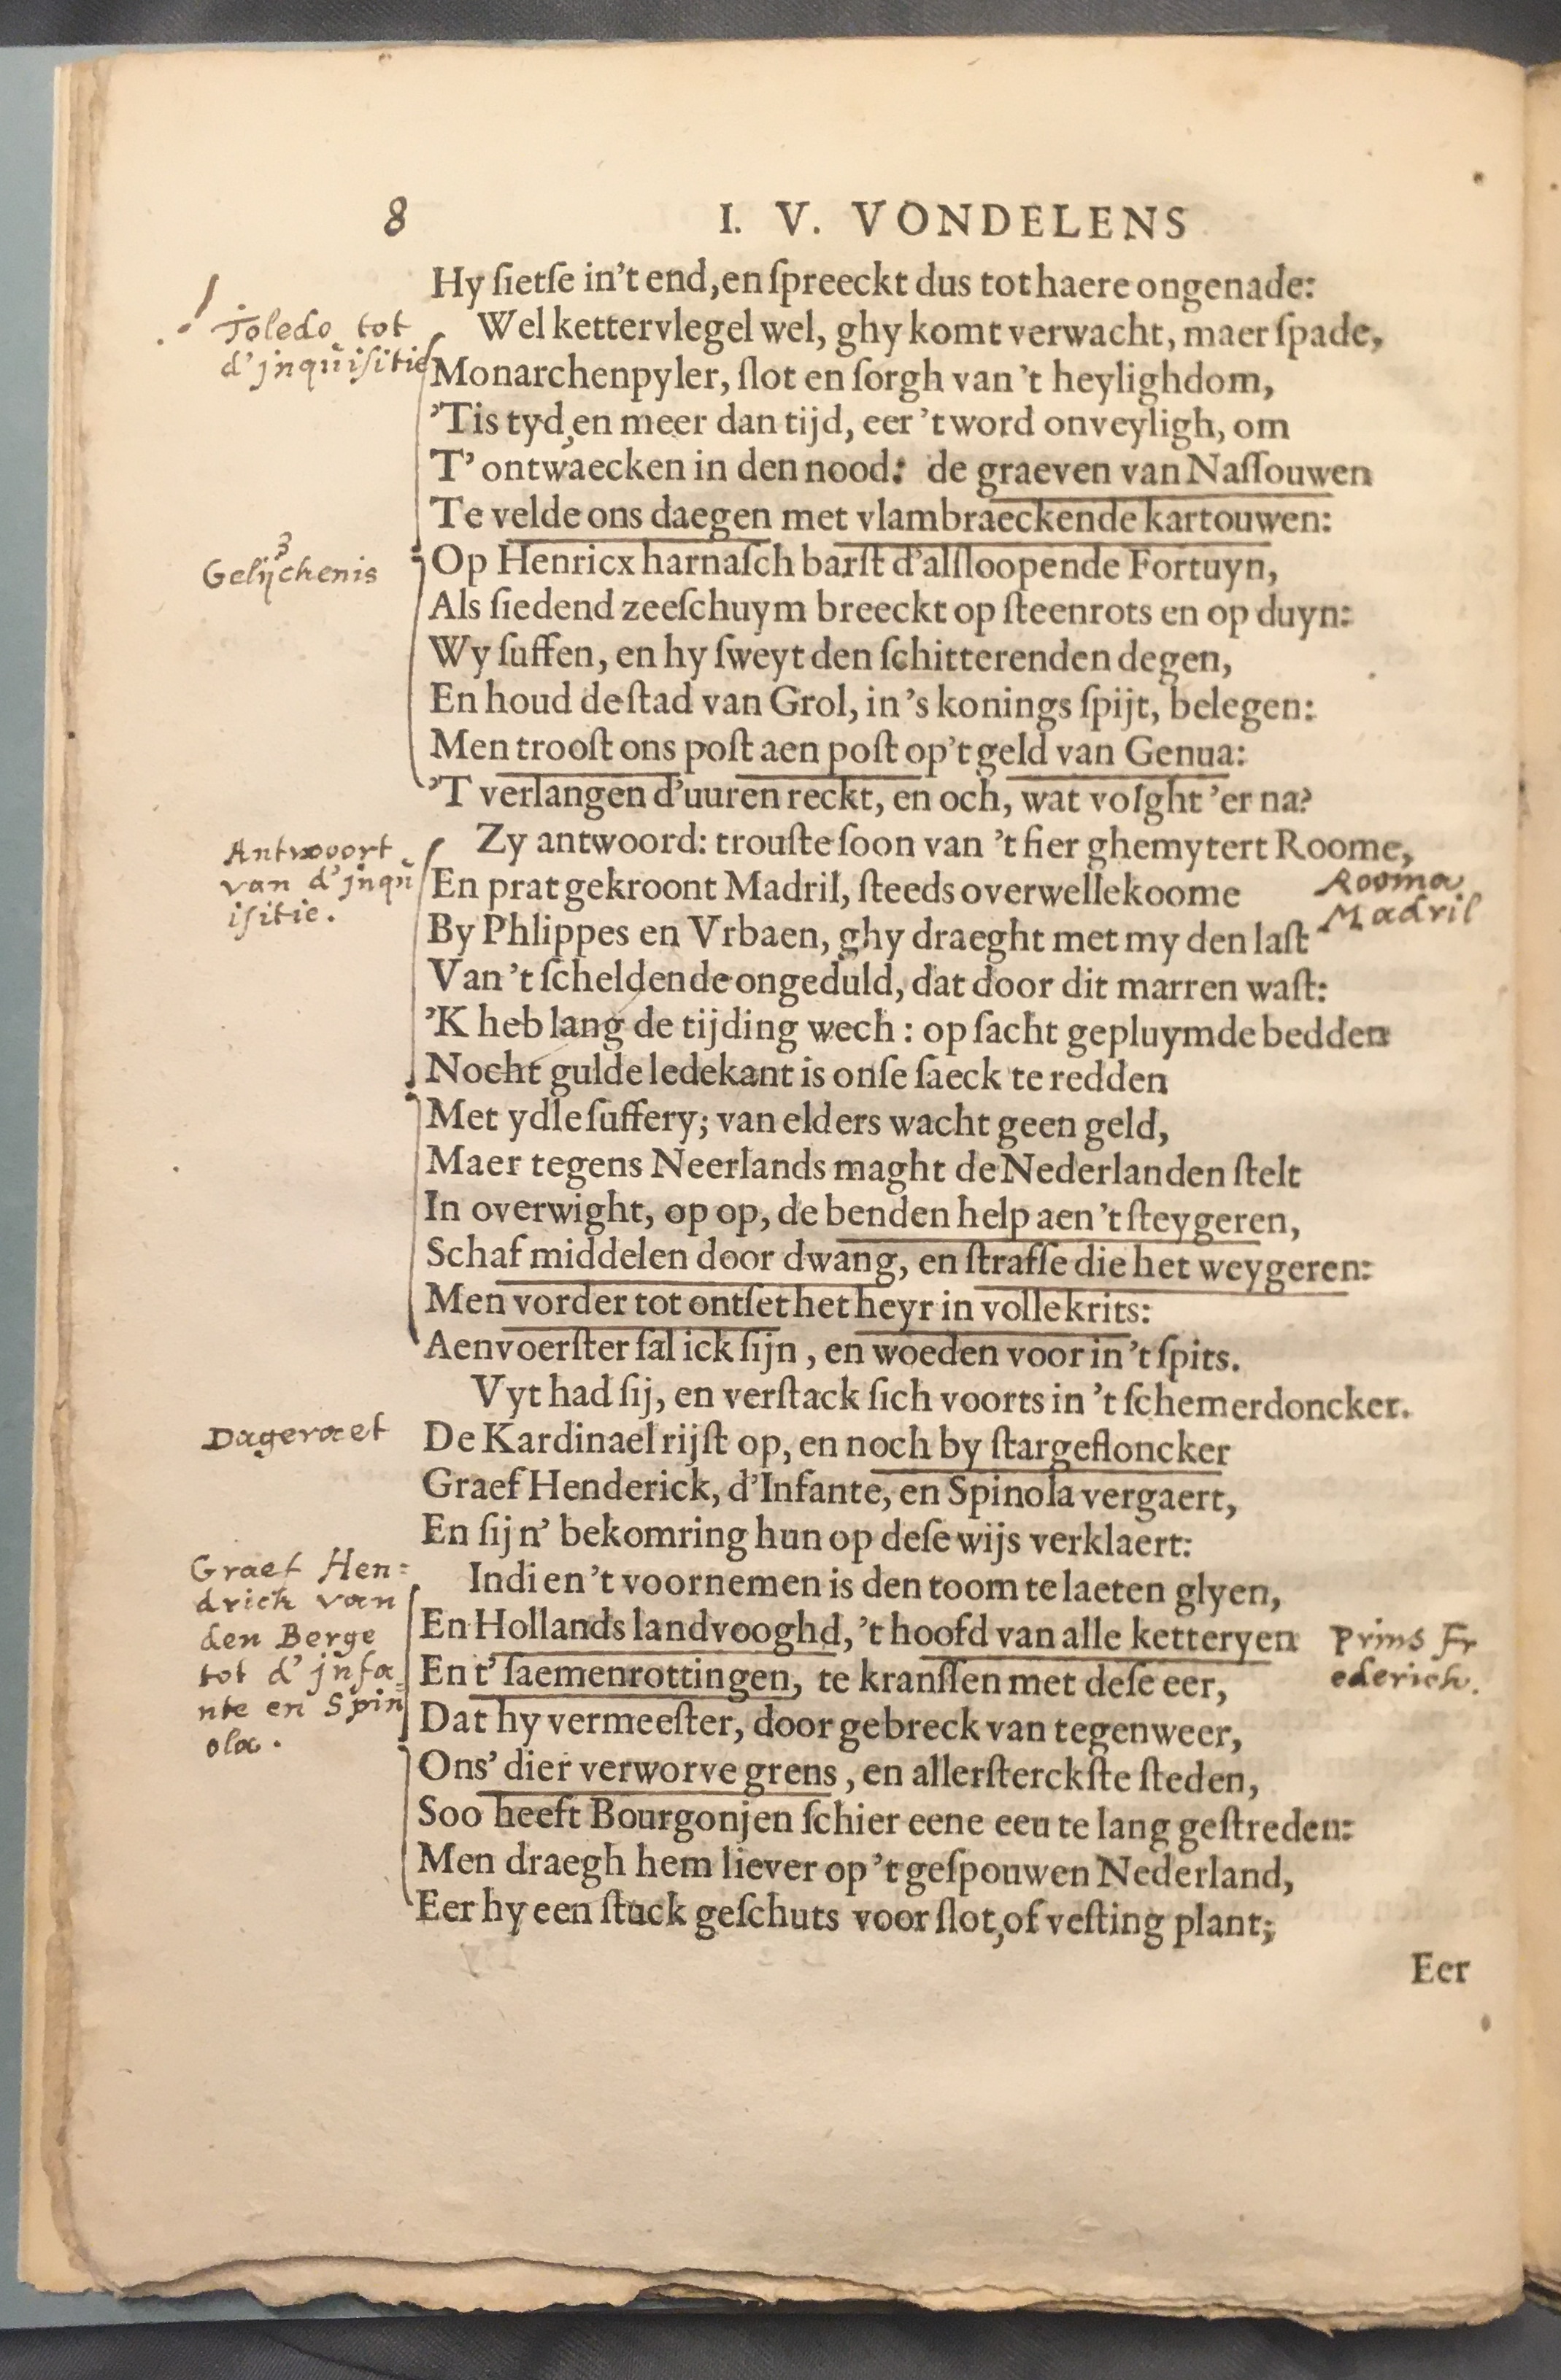 8 I. V. VONDELENS
Hy ſietſe in’t end, en ſpreeckt dus tot haere ongenade:
!
Toledo tot
d’jnquiſitie
Wel kettervlegel wel, ghy komt verwacht, maer ſpade,
Monarchenpyler, ſlot en ſorgh van ’t heylighdom,
’Tis tyd, en meer dan tijd, eer ’t word onveyligh, om
T’ ontwaecken in den nood: de graeven van Naſſouwen
Te velde ons daegen met vlambraeckende kartouwen:
3
Gelijchenis
Op Henricx harnaſch barſt d’alſloopende Fortuyn,
Als ſiedend zeeſchuym breeckt op ſteenrots en op duyn:
Wy ſuffen, en hy ſweyt den ſchitterenden degen,
En houd de ſtad van Grol, in ’s konings ſpijt, belegen:
Men trooſt ons poſt aen poſt op’t geld van Genua:
’T verlangen d’uuren reckt, en och, wat volght ’er na?
Antwoort
van d’jnqu
iſitie.
Zy antwoord: trouſte ſoon van ’t fier ghemytert Roome,
En prat gekroont Madril, ſteeds overwellekoome
Rooma
Madril
By Phlippes en Vrbaen, ghy draeght met my den laſt
Van ’t ſcheldende ongeduld, dat door dit marren waſt:
’K heb lang de tijding wech : op ſacht gepluymde bedden
Nocht gulde ledekant is onſe ſaeck te redden
Met ydle ſuffery; van elders wacht geen geld,
Maer tegens Neerlands maght de Nederlanden ſtelt
In overwight, op op, de benden help aen ’t ſteygeren,
Schaf middelen door dwang, en ſtraffe die het weygeren:
Men vorder tot ontſet het heyr in volle krits:
Aenvoerſter ſal ick ſijn , en woeden voor in ’t ſpits.
Vyt had ſij, en verſtack ſich voorts in ’t ſchemerdoncker.
Dageraet
De Kardinael rijſt op, en noch by ſtargefloncker
Graef Henderick, d’Infante, en Spinola vergaert,
En ſijn’ bekomring hun op deſe wijs verklaert:
Graef Hen=
drich van
den Berge
tot d’jnfa
nte en Spin
ola.
Indien ’t voornemen is den toom te laeten glyen,
En Hollands landvooghd, ’t hoofd van alle ketteryen
Prins Fr
ederich.
En t’ſaemenrottingen, te kranſſen met deſe eer,
Dat hy vermeeſter, door gebreck van tegenweer,
Ons’ dier verworve grens , en allerſterckſte ſteden,
Soo heeft Bourgonjen ſchier eene eeu te lang geſtreden:
Men draegh hem liever op ’t geſpouwen Nederland,
Eer hy een ſtuck geſchuts voor ſlot, of veſting plant;
Eer